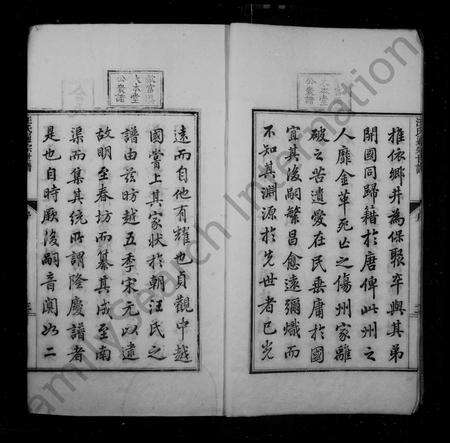 推依鄉井為保聚卒與其弟
開國同歸籍於唐俾此州之
人靡金革死亡之傷州家離
破之苦遺愛在民垂庸於國
宜其後嗣繁昌愈遠彌熾而
不知其淵源於先世者已光
遠而自他有耀也貞觀中越
國嘗上其家狀於朝汪氏之
譜由茲昉越五季宋元以遠
故明至春坊而纂其成至南
渠而集其統所謂隆慶譜者
是也自時厥後嗣音闃如二
公裳譜
Family Search International